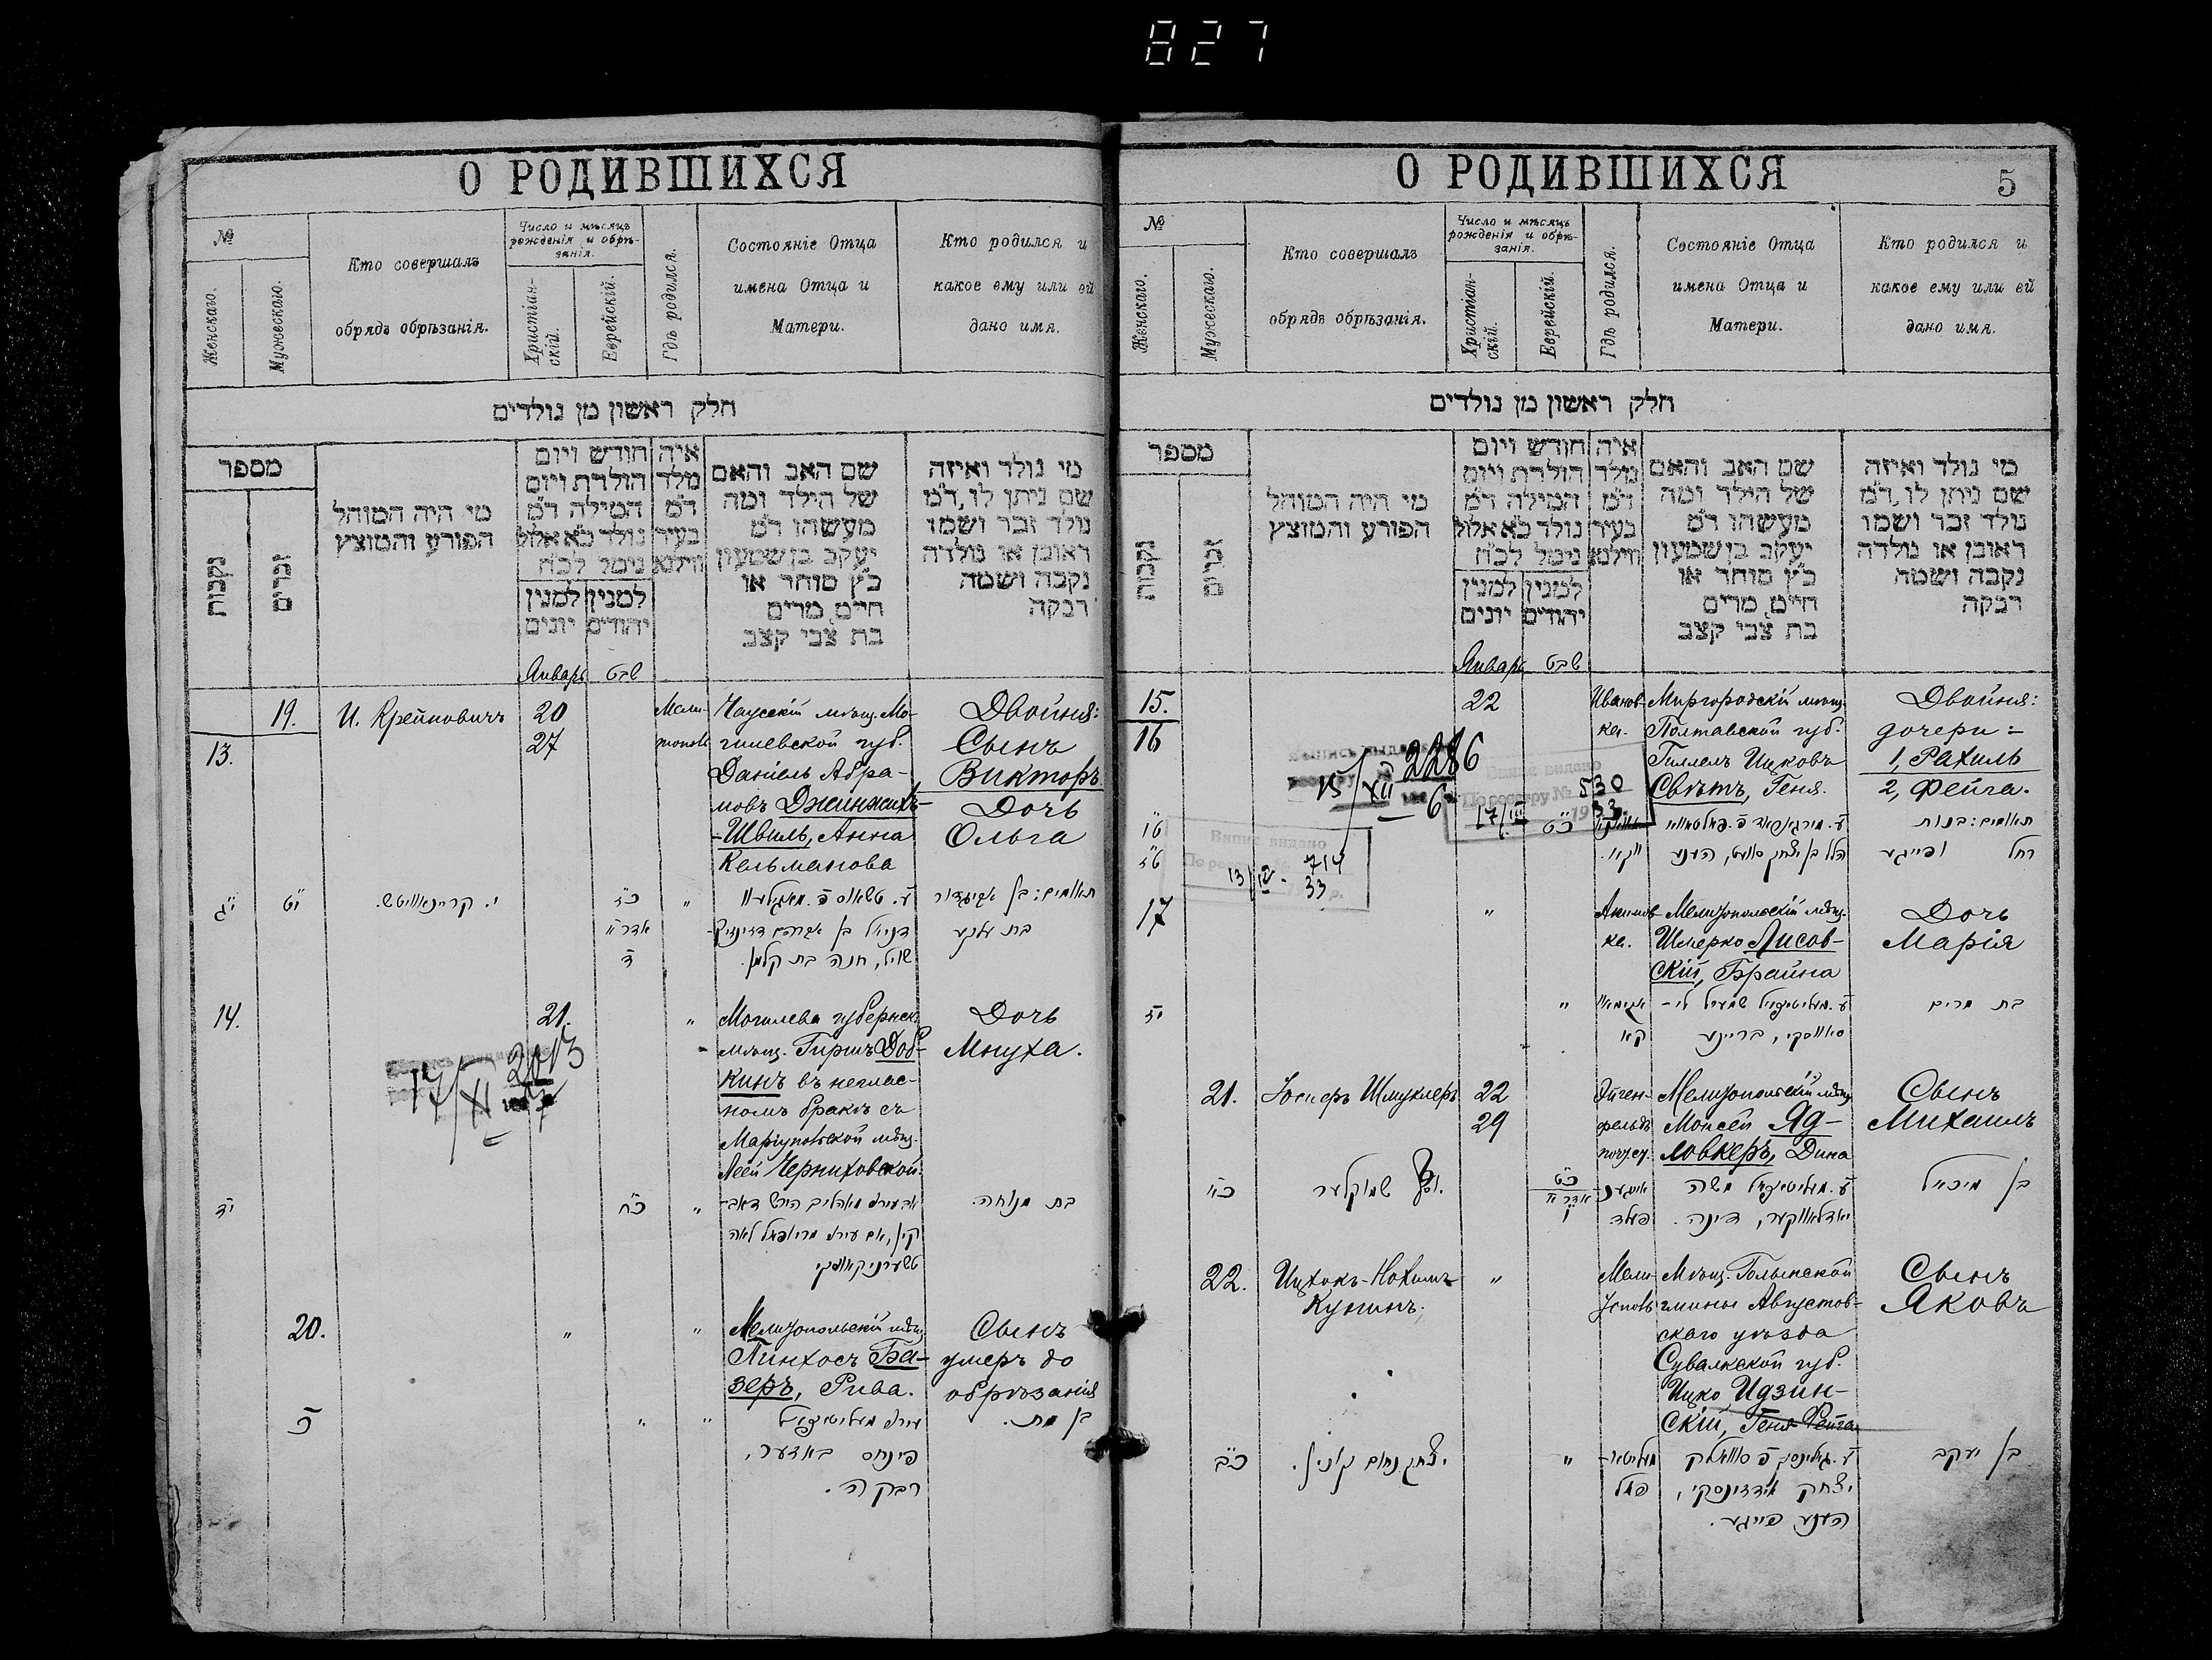 827
О РОДИВШИХСЯ
№
Женскаго.
Мужескаго.
Кто совершалъ
обрядъ обрѣзанія.
Число и мѣсяцъ
рожденія и обрѣ-
занія.
Христіан-
скій.
Еврейскій.
Гдѣ родился.
Состояніе Отца
имена Отца и
Матери.
Кто родился и
какое ему или ей
дано имя.
חלק ראשון מן נולדים
מספר
נקבות
זכרים
מי היה המוהל
הפורע והמוצץ
חודש ויום
הולדת ויום
המילה ד"מ
נולד כ"א אלול
נימל לכ"ח
למנין
יהודים
למנין
יונים
איה
מלד
ד"מ
בעיר
ווילנא
שם האב והאם
של הילד ומה
מעשהו ד"מ
יעקב בן שמעון
כ"ץ סוחר או
חיים, מרים
בת צבי קצב
מי נולד ואיזה
שם ניתן לו, ד"מ
נולד זכר ושמו
ראובן או נולדה
נקבה ושמה
רבקה
Январь
שבט
19.
13.
И. Крейновичъ
20
27
Мели-
тополь
Чаусскій мѣщ. Мо-
гилевской губ.
Даніель Абра-
мовъ Джинжихъ-
-Швиль, Анна
Кельманова
Двойня:
Сынъ
Викторъ
Дочь
Ольга
י"ג
י"ט
י. קריינאוויטש.
כ"ז
אדר
ד
שוויל, חנה בת קלמן.
14.
21.
"
Могилева губернск.
мѣщ. Гиршъ Доб-
кинъ въ неглас-
номъ бракѣ съ
Маріупольской мѣщ.
Леей Черниховской.
Дочь
Мнуха.
17/XI 2013
י"ד
כ"ח
"
בת מנוחה.
20.
"
"
Мелитопольскій мѣщ.
Пинхосъ Ба-
зеръ, Рива.
Сынъ
умеръ до
обрѣзанія
כ
"
"
פינחס באזער,
רבקה.
בן מת.
О РОДИВШИХСЯ
5
№
Женскаго.
Мужескаго.
Кто совершалъ
обрядъ обрѣзанія.
Число и мѣсяцъ
рожденія и обрѣ-
занія.
Христіан-
скій.
Еврейскій.
Гдѣ родился.
Состояніе Отца
имена Отца и
Матери.
Кто родился и
какое ему или ей
дано имя.
חלק ראשון מן נולדים
מספר
נקבות
זכרים
מי היה המוהל
הפורע והמוצץ
חודש ויום
הולדת ויום
המילה ד"מ
נולד כ"א אלול
נימל לכ"ח
למנין
יהודים
למנין
יונים
איה
מלד
ד"מ
בעיר
ווילנא
שם האב והאם
של הילד ומה
מעשהו ד"מ
יעקב בן שמעון
כ"ץ סוחר או
חיים, מרים
בת צבי קצב
מי נולד ואיזה
שם ניתן לו, ד"מ
נולד זכר ושמו
ראובן או נולדה
נקבה ושמה
רבקה
Январь
שבט
15.
16
22
Иванов-
ка.
Миргородскій мѣщ.
Полтавской губ.
Гиллель Ицковъ
Свѣтъ, Геня.
Двойня:
дочери:
1, Рахиль
2, Фейга.
15/XII 2286
6
Випис видано
По реєстру № 530
17/III 33
Випис видано
По реєстру № 714
13/IV 33 р.
ט"ו
ט"ז
כ"ט
הלל בן יצחק סוועט, הענע
תאומים: בנות
רחל ופייגע
17
"
Акимов-
ка.
Мелитопольскій мѣщ.
Шмерко Лисов-
скій, Брайна
Дочь
Марія
י"ז
"
סאווסקי, בריינע
בת מרים
21.
Іосифъ Шмуклеръ
22
29
Эйген-
фельдъ
Мелитопольскій мѣщ.
Моисей Яд-
ловкеръ, Дина
Сынъ
Михаилъ
כ"א
יוסף שמוקלער
כ"ט
אדר
ו
אייגענ-
פעלד
יאדלאווקער, דינה.
בן מיכאל
22.
Ицхокъ-Нохимъ
Кунинъ.
"
Мели-
тополь
Мѣщ. Голынской
гмины Августов-
скаго уѣзда
Сувалкской губ.
Ицко Идзин-
скій, Геня Фейга
Сынъ
Яковъ
כ"ב
יצחק נחום קונין.
"
מעליטא-
פאל
יצחק אידזינסקי,
הענע פייגע.
בן יעקב